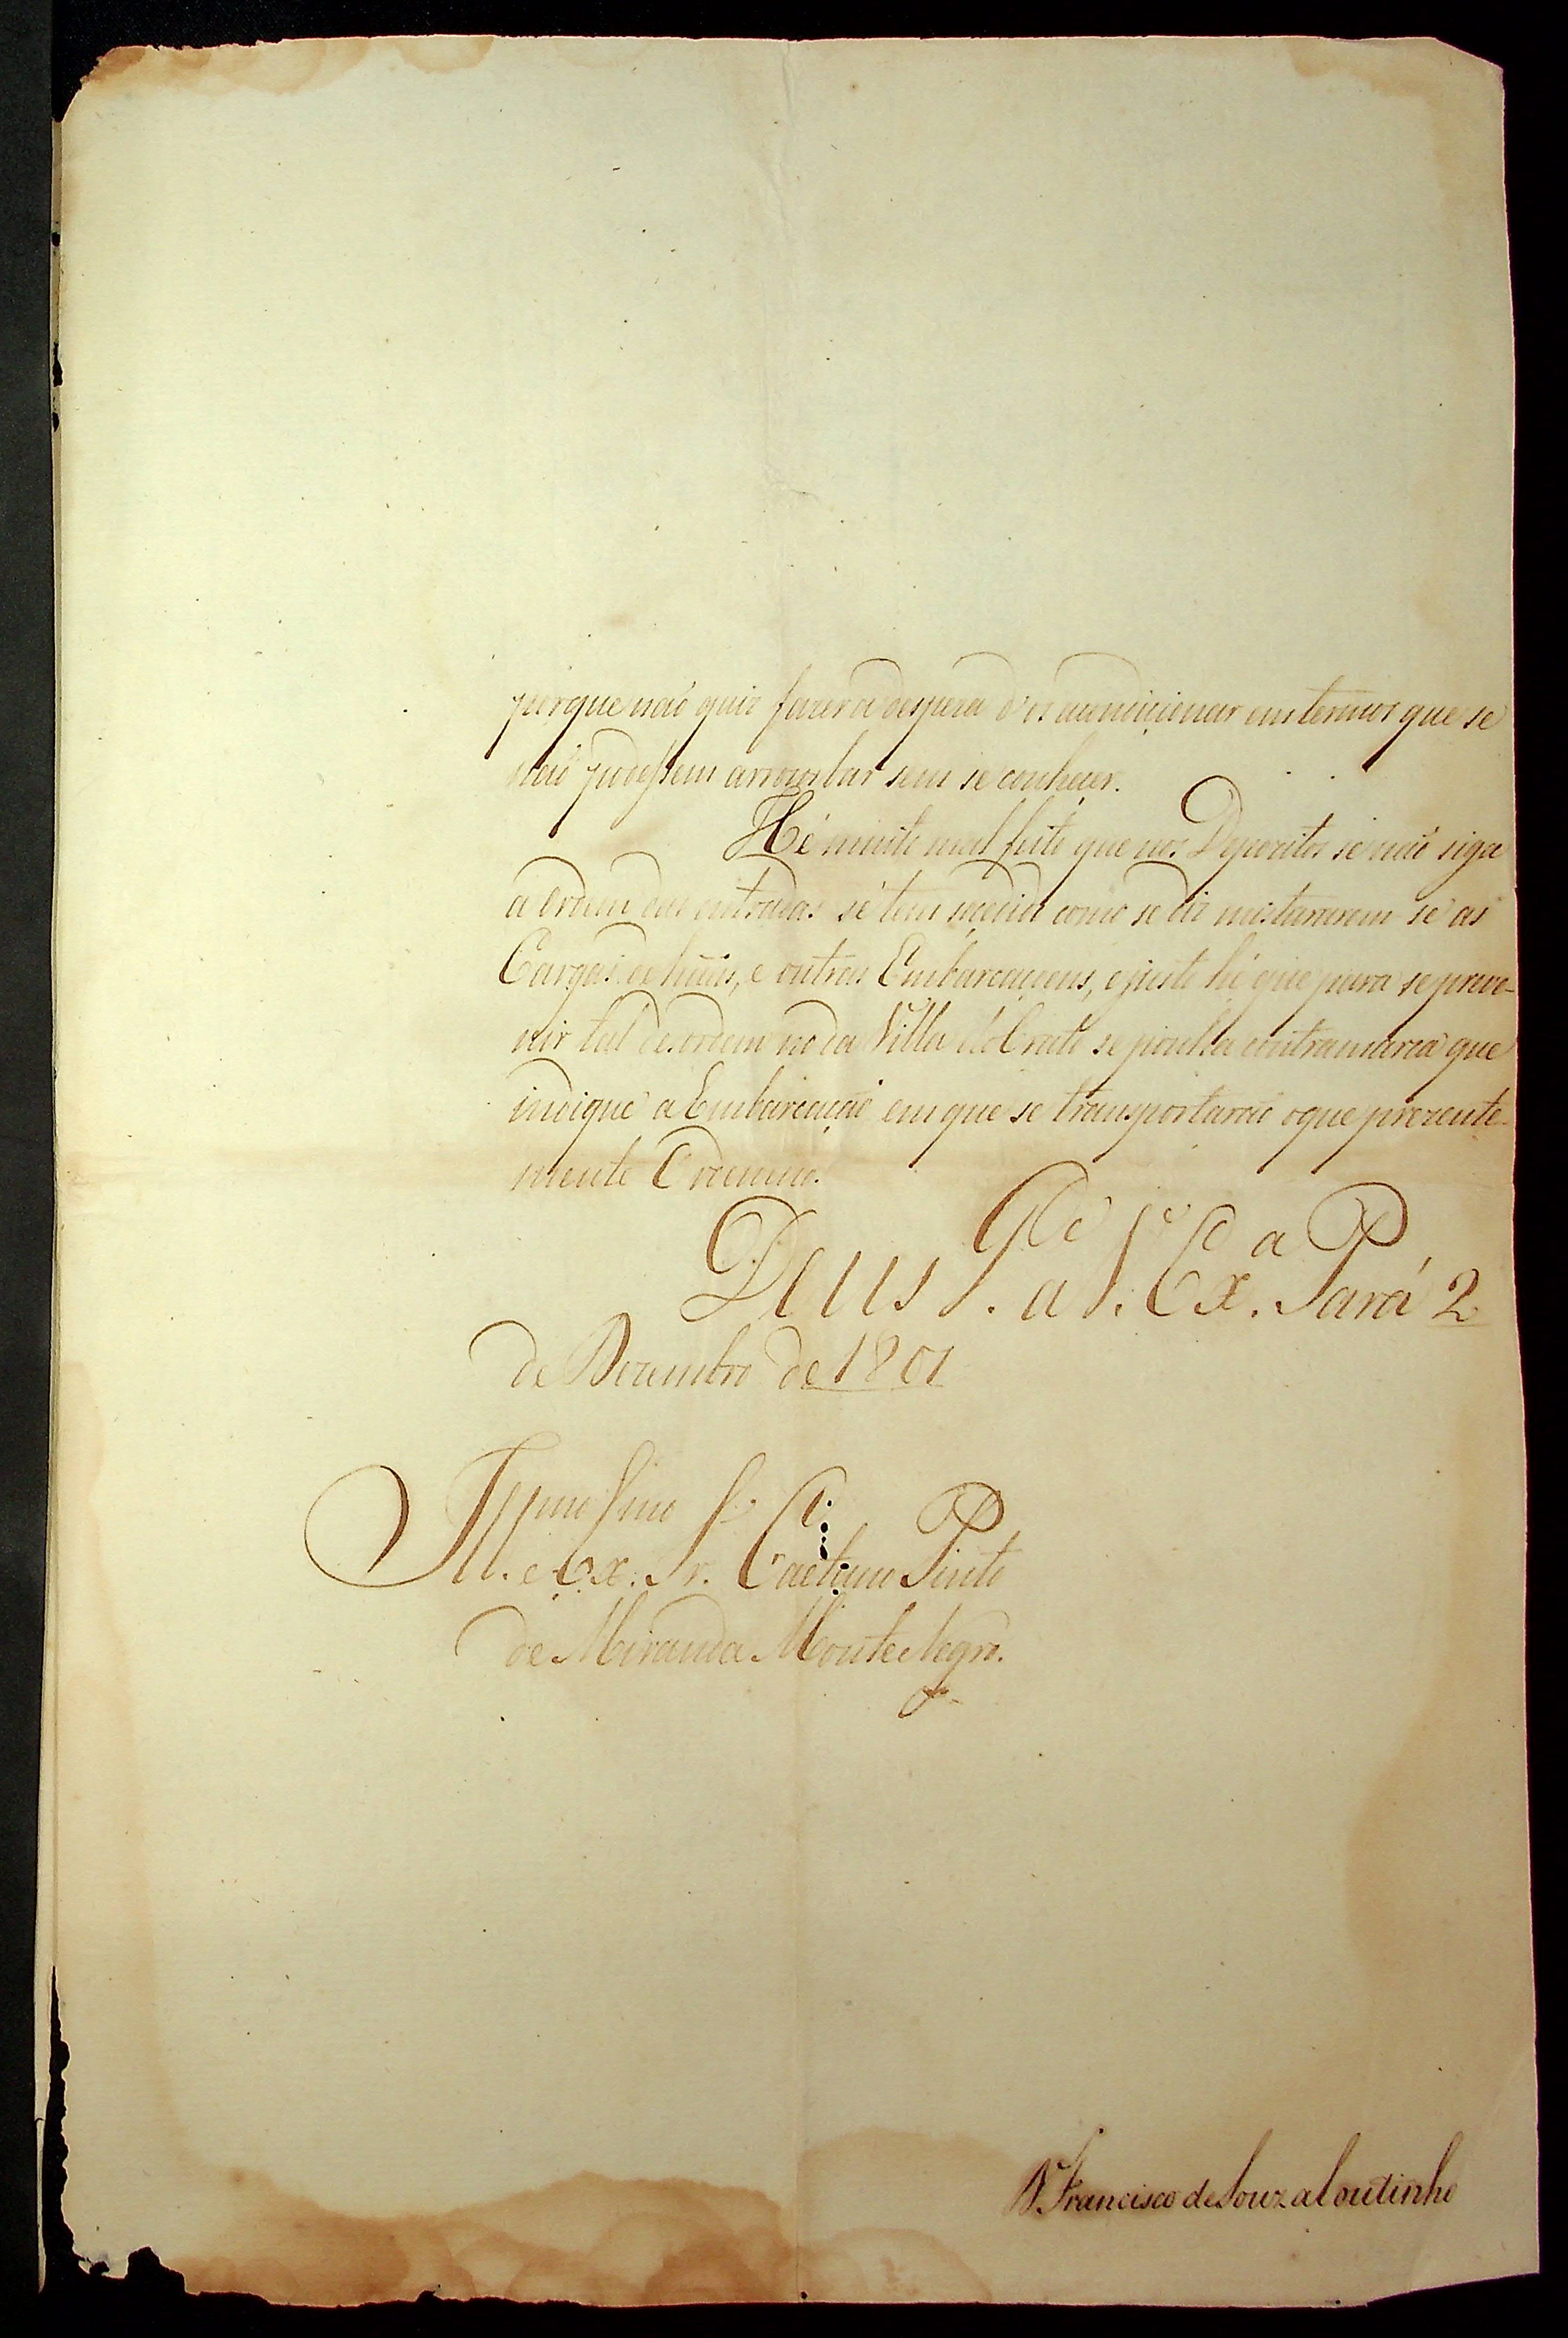 porque naõ quiz fazer a despeza d'os acondicionar em termos que se
naõ podessem arrombar sem se conhecer.
Hé muito mal feito que nos Depozitos se naõ siga
a ordem das entradas se tem sucedido como se diz misturarem se as
Cargas de huãs, e outras Embarcaçoens, e justo hé que para se preve-
nir tal desordem no da Villa do Crato se ponha contramarca que
indique a Embarcaçaõ em que se transportaraõ o que prezente-
mente Ordeno.
Deus G.de a V. Ex.a Pará 2
de Dezembro de 1801
Ill.mo e Ex.mo Sr. Caetano Pinto
de Miranda Monte Negro.
D. Francisco de Souza Coutinho